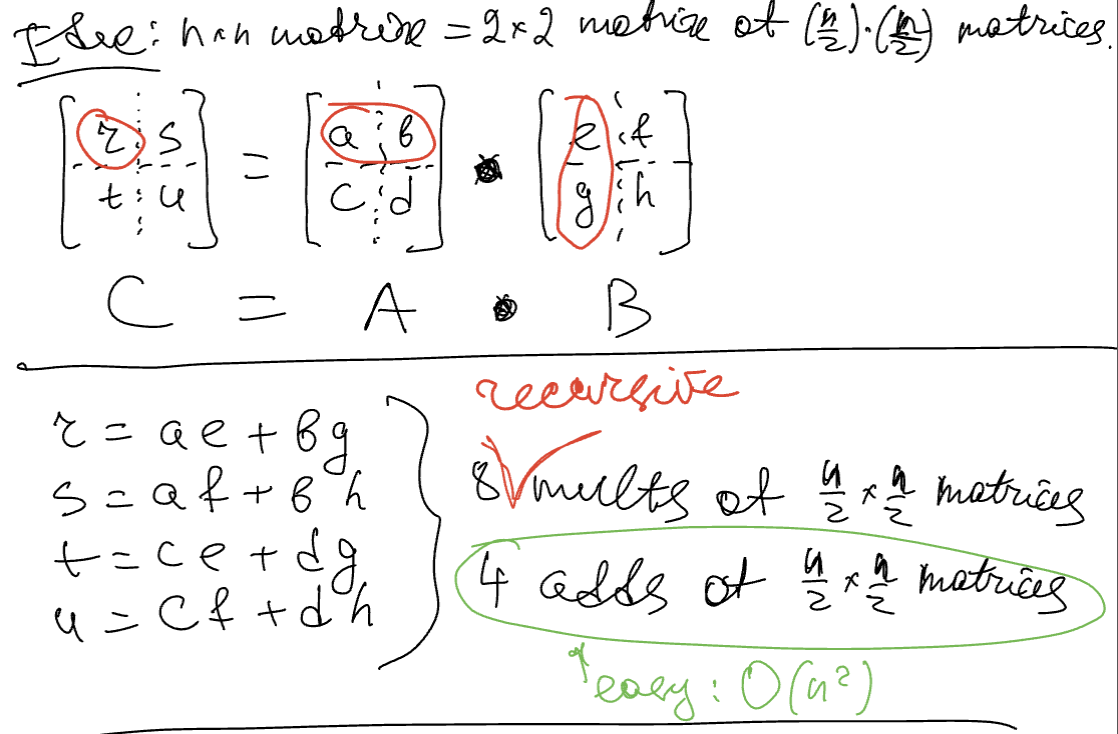 Idea: n×n matrix = 2×2 matrix of (n/2)·(n/2) matrices.
[r s] = [a b] • [e f]
[t u] [c d] [g h]
C = A • B
recursive
r = ae + bg
s = af + bh
t = ce + dg
u = cf + dh
8 mults of n/2 × n/2 matrices
4 adds of n/2 × n/2 matrices
easy: O(n²)